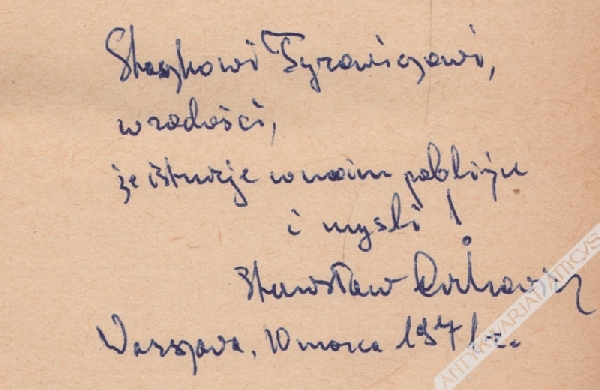 Staszkowi Tyrowiczowi,
w radości,
że istnieje w moim pobliżu
i myśli!
Stanisław
Warszawa, 10 marca 1971 r.
ANTYKWARIAT ATTICVS